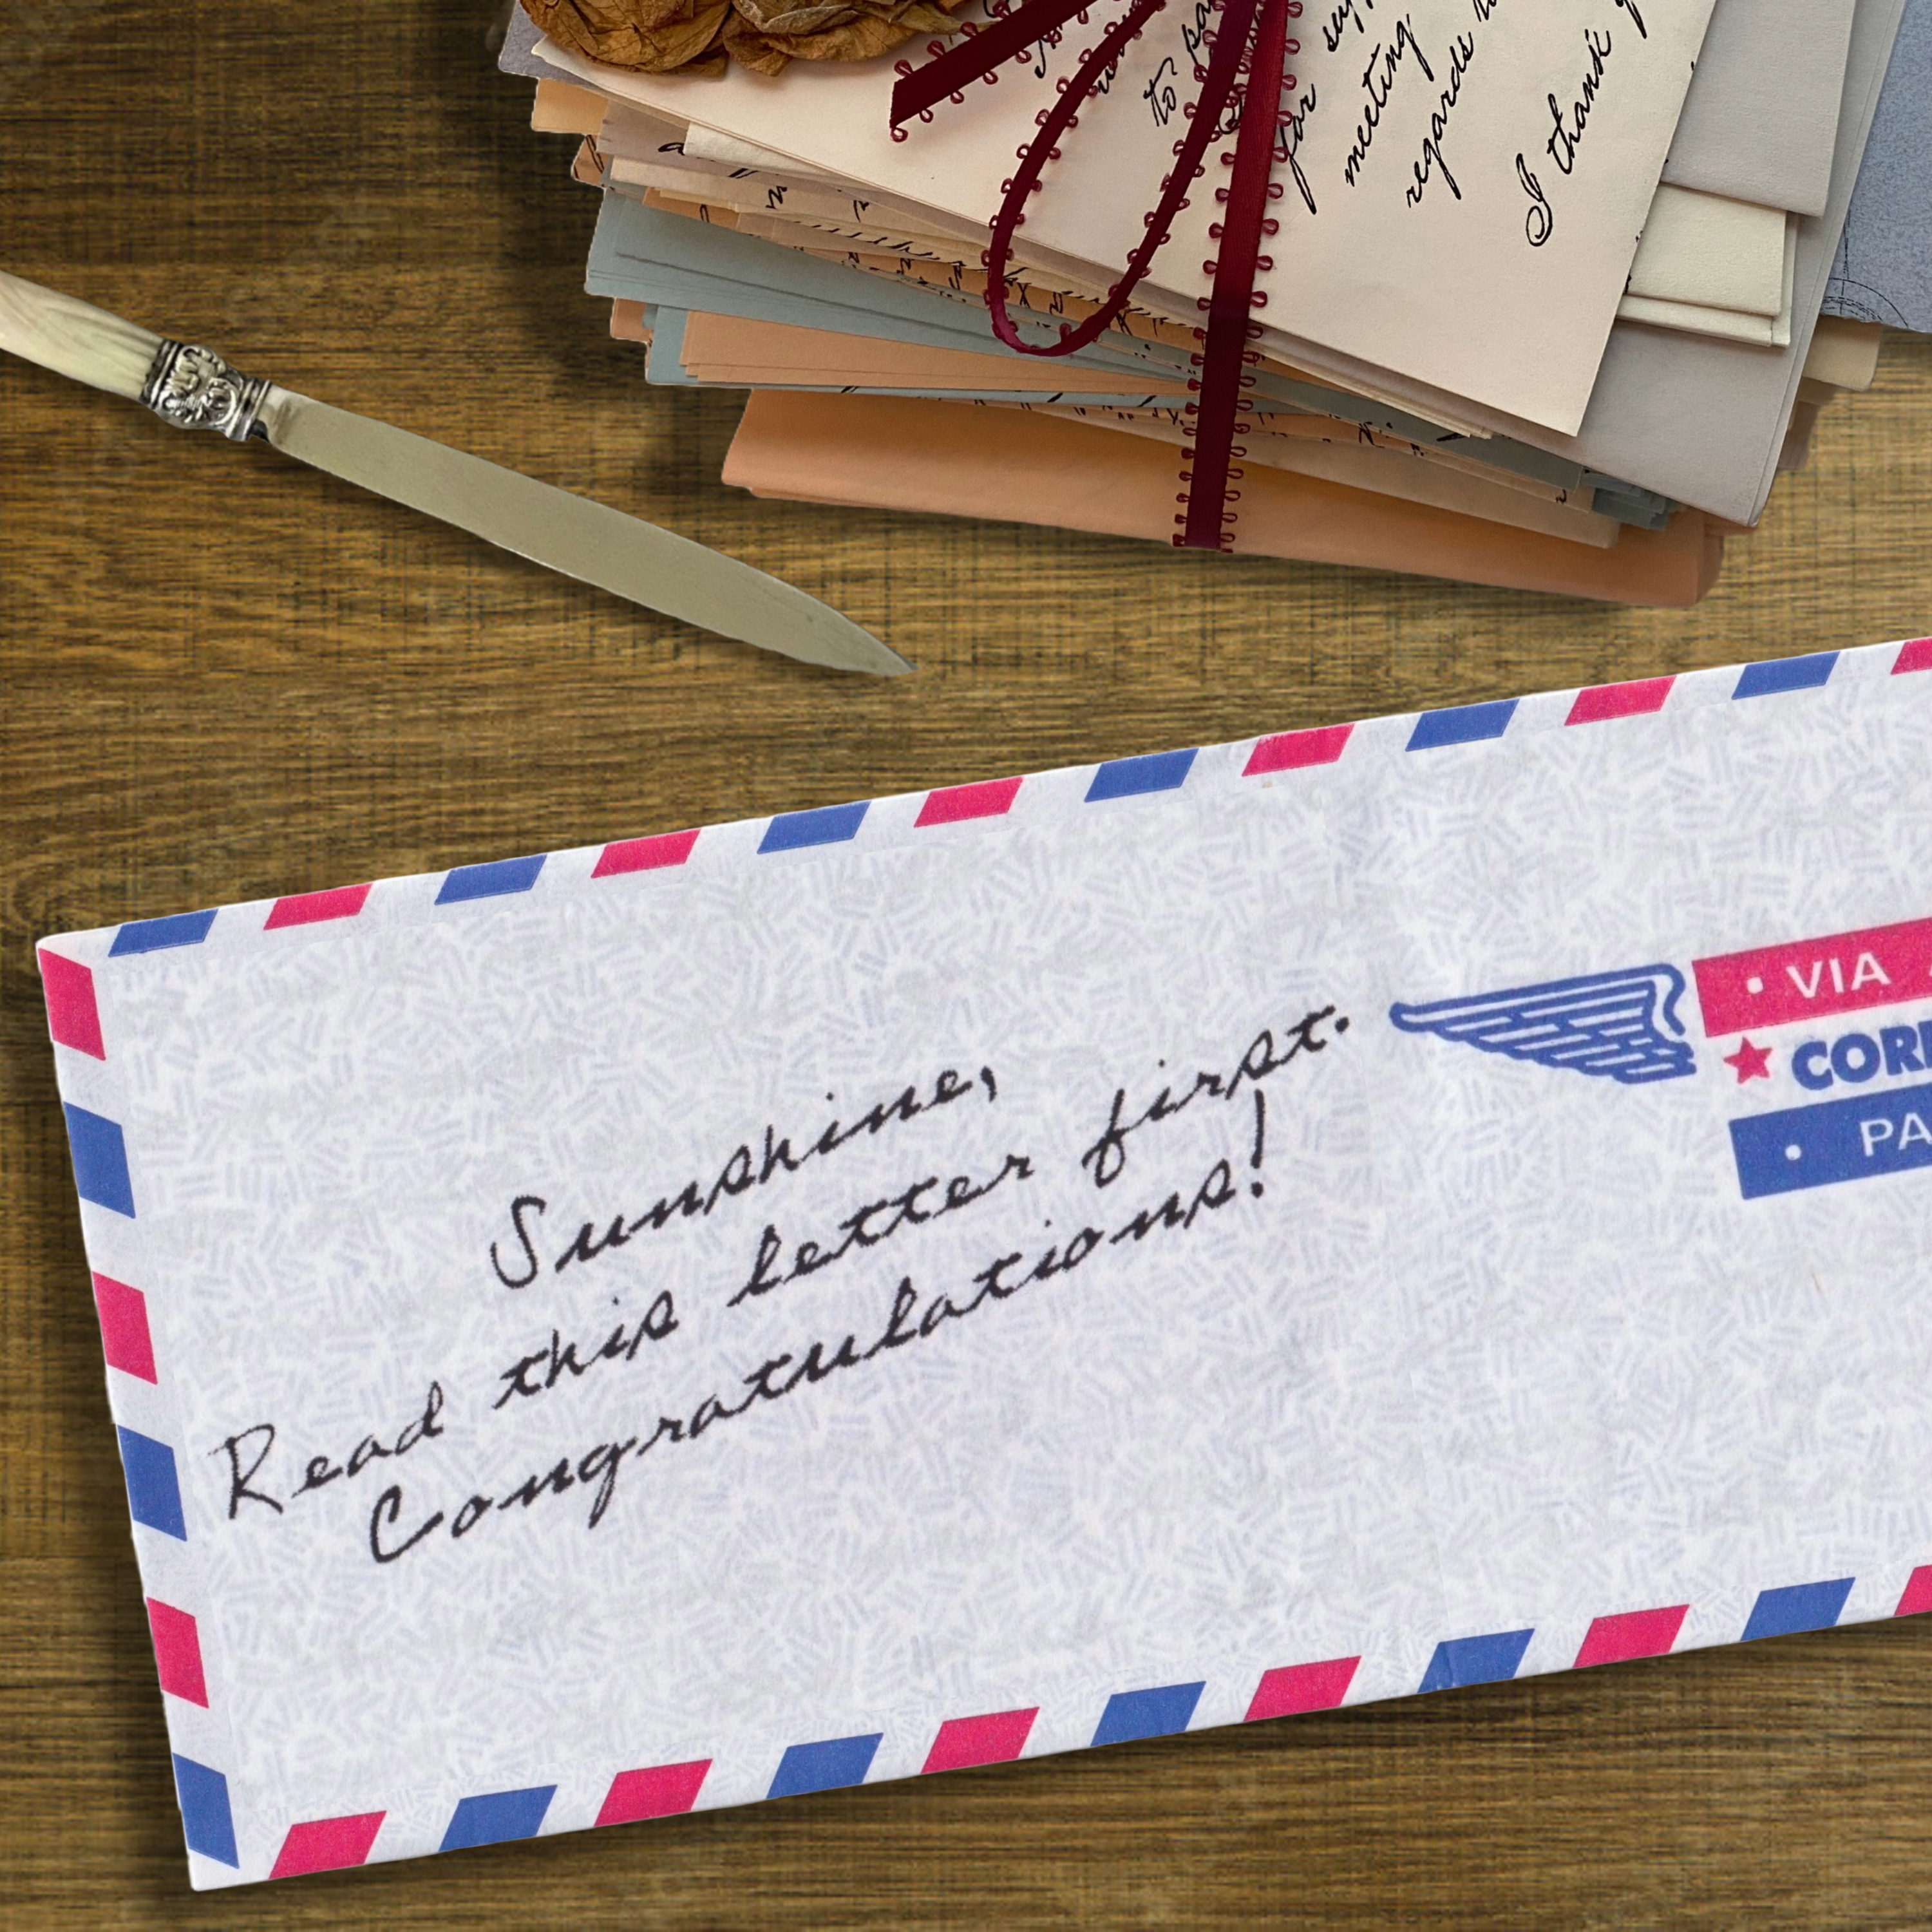 to
for
meeting
regards
I thank
Sunshine,
Read this letter first.
Congratulations!
VIA
COR
PA